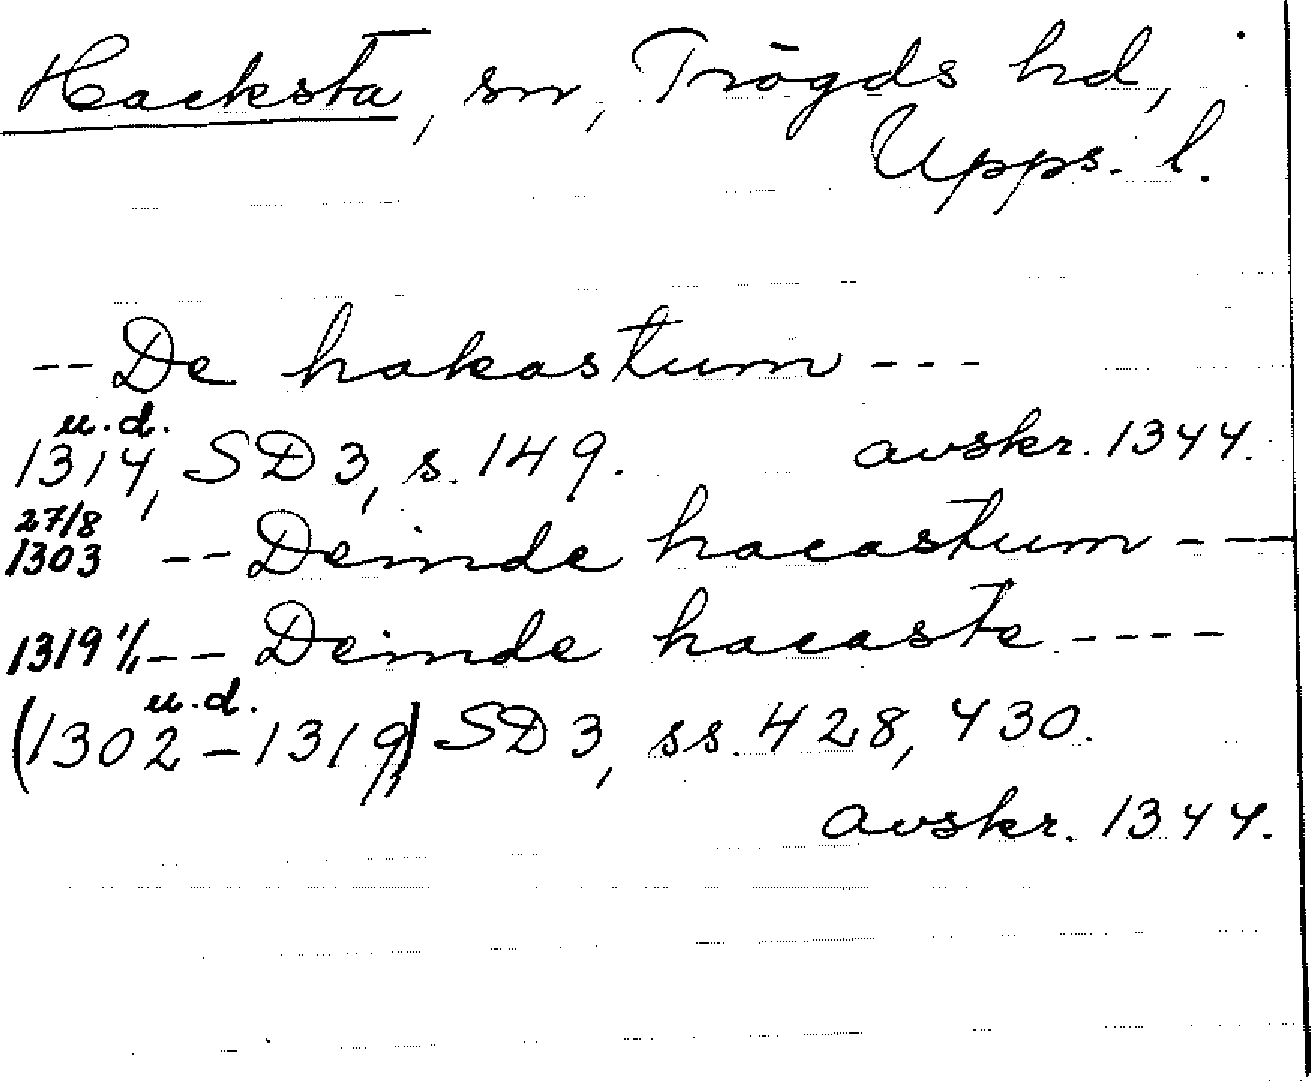 Hacksta, sn, Trögds hd,
Upps. l.
-- De hakastum ---
u.d.
1314, SD 3, s. 149. avskr. 1344.
27/8
1303 -- Deinde hacastum ---
1319 -- Deinde hacaste ----
u.d.
(1302-1319) SD 3, ss. 428, 430.
avskr. 1344.